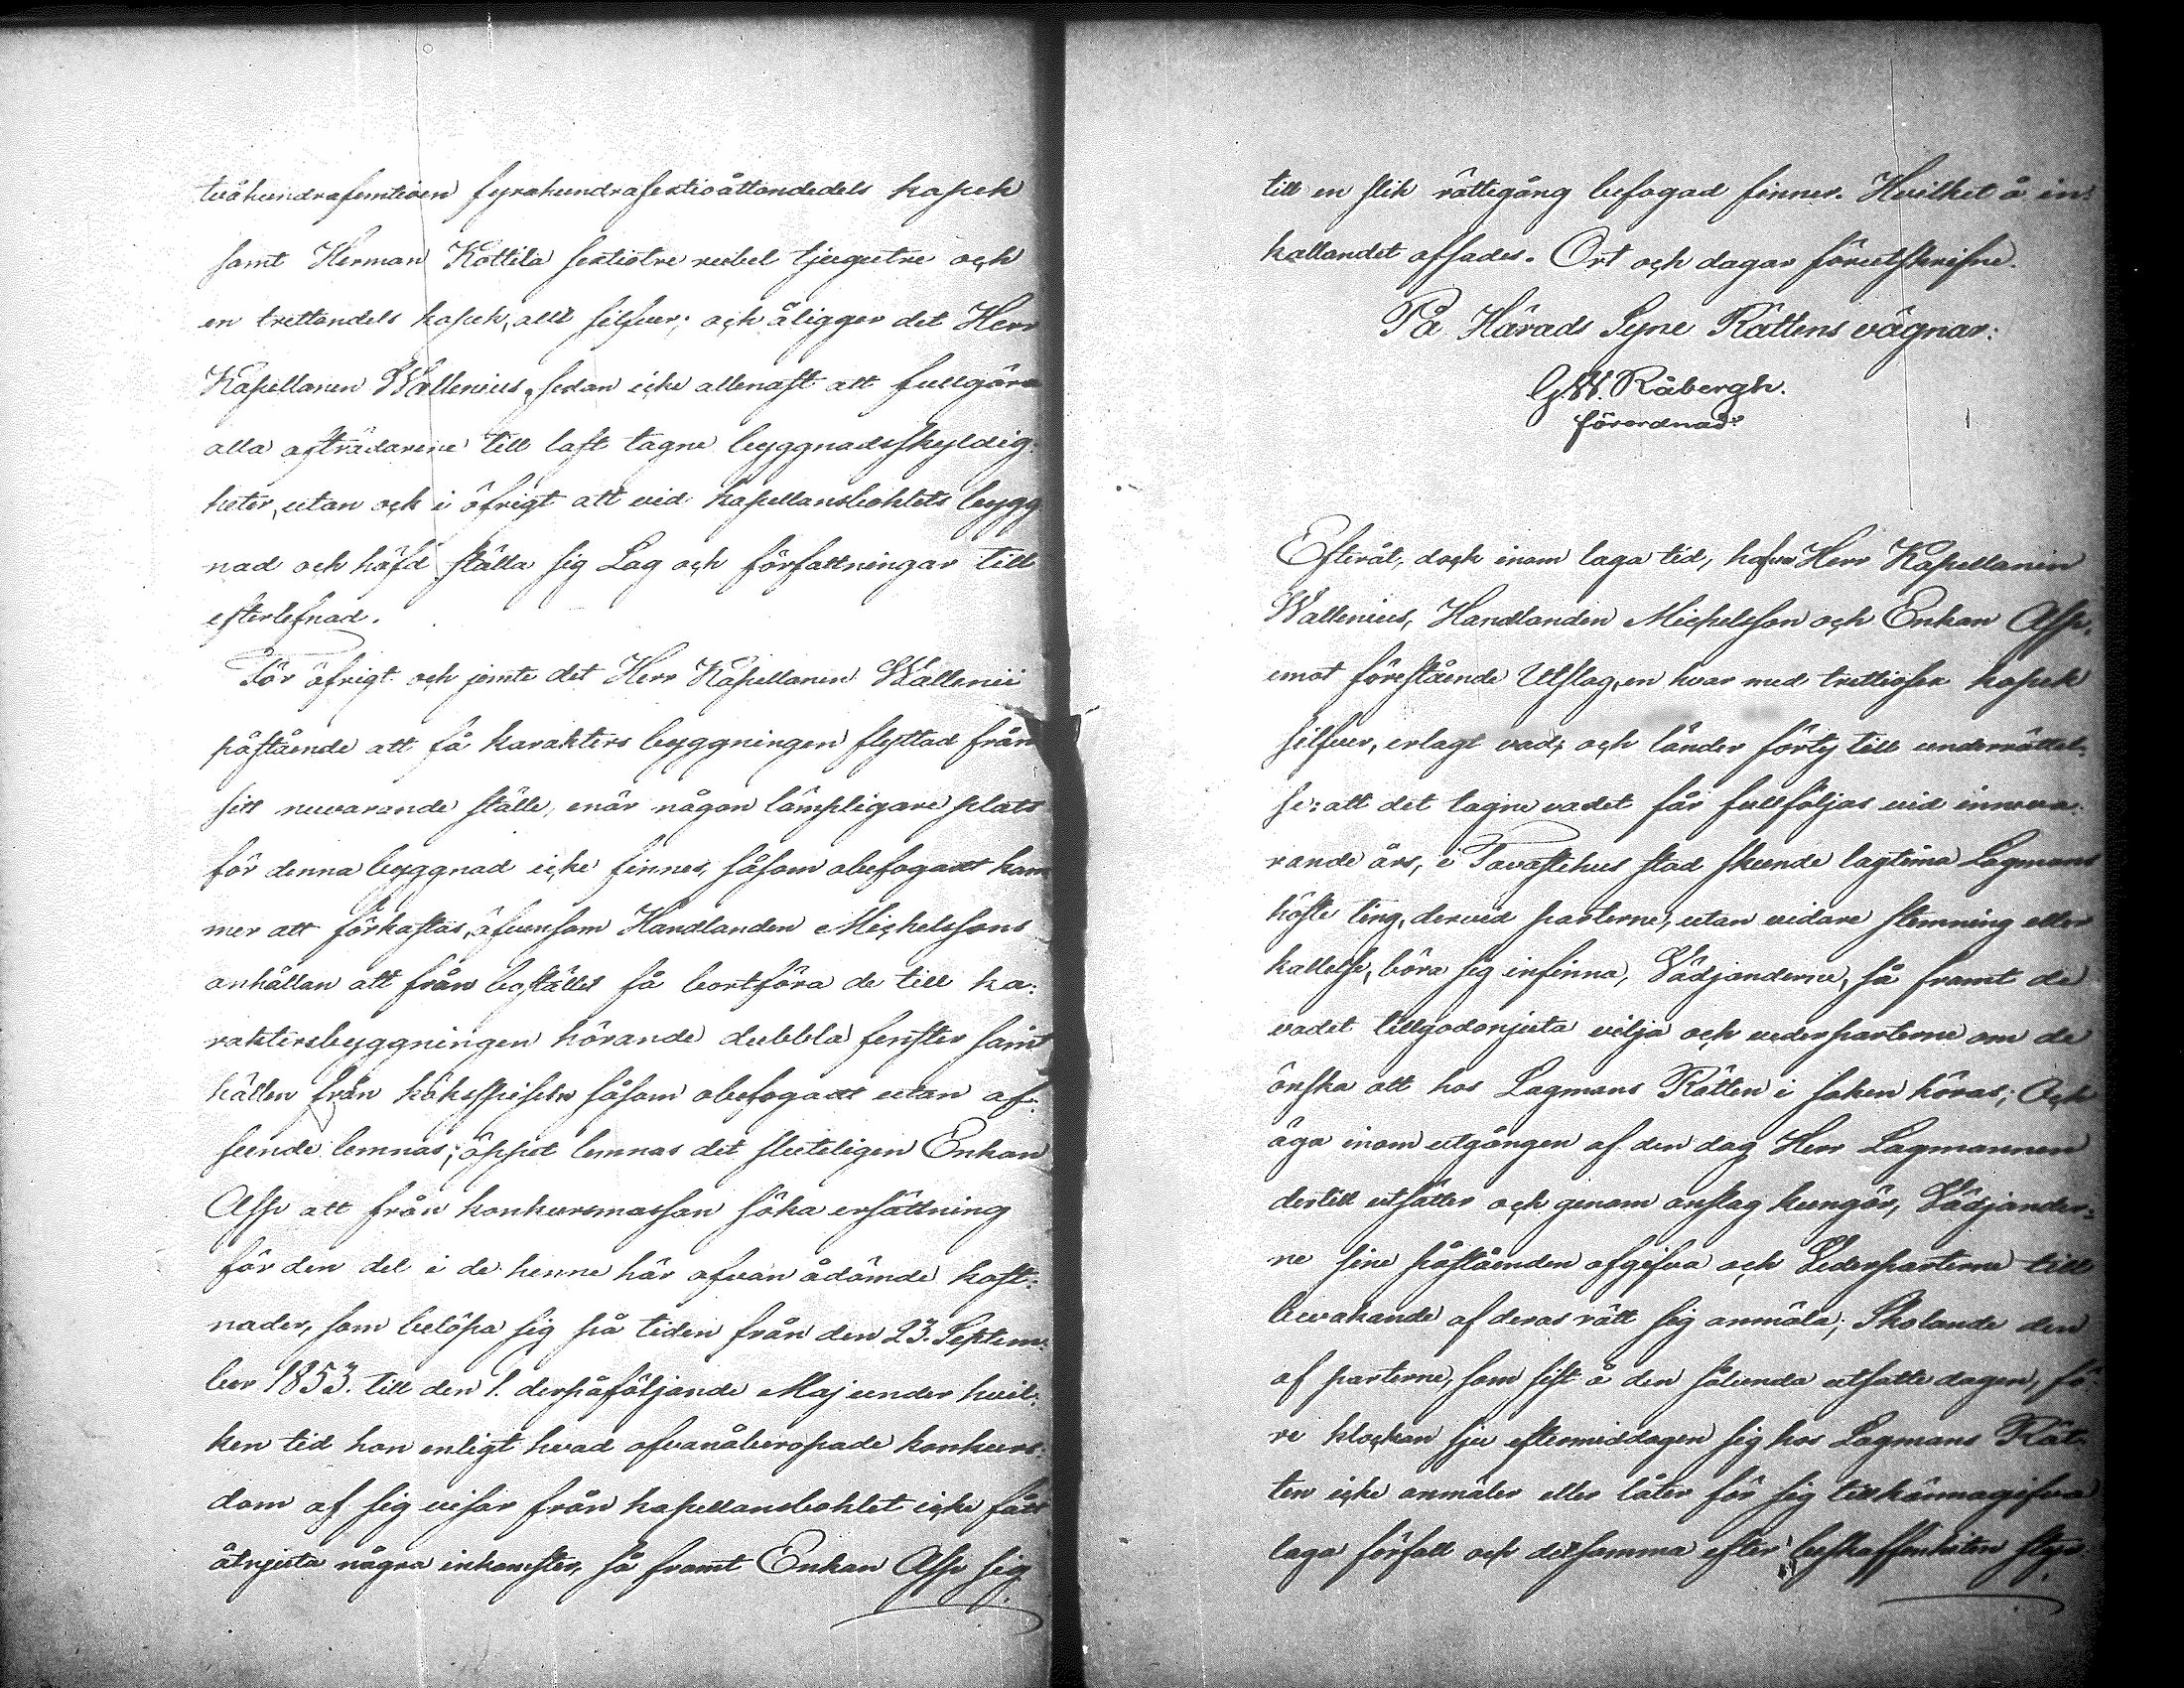 tvåhundrafemtioen fyrahundrasextioåttondedels kopek
samt Herman Kottila sextiotre rubel tjugutre och
en trettondels kopek, allt silfver; och åligger det Herr
Kapellanen Wallenius, sedan icke allenast att fullgöra
alla afträdarene till last tagne byggnadsskyldig-
heter, utan och i öfrigt att vid kapellansbohlets bygg
nad och häfd ställa sig Lag och författningar till
efterlefnad.
För öfrigt och jemte det Herr Kapellanen Wallenii
påstående att få karakters byggningen flyttad från
sitt nuvarande ställe, enär någon lämpligare plats
för denna byggnad icke finnes, såsom obefogadt kom
mer att förkastas, äfvensom Handlanden Michelssons
anhållan att från bostället få bortföra de till ka:
raktersbyggningen hörande dubbla fenster samt
hällen från köksspiseln såsom obefogadt utan af-
seende lemnas; öppet lemnas det sluteligen Enkan
Asp att från konkursmassan söka ersättning
för den del i de henne här ofvan ådömde kost:
nader, som belöpa sig på tiden från den 23. Septem:
ber 1853. till den 1. derpåföljande Maj under hvil:
ken tid hon enligt hvad ofvanåberopade konkurs:
dom af sig visar från kapellansbohlet icke fått
åtnjuta några inkomster, så framt Enkan Asp sig
till en slik rättegång befogad finner. Hvilket å in:
kallandet afsades. Ort och dagar förutskrifne.
På Härads Syne Rättens vägnar:
G. W. Råbergh.
förordnad
Efteråt, doch inom laga tid, hafva Herr Kapellanen
Wallenius, Handlanden Michelsson och Enkan Asp,
emot förestående Utslag, en hvar med trettiosex kopek
silfver, erlagt vad; och länder förty till underrättel:
se: att det tagne vadet får fullföljas vid innva-
rande års, i Tavastehus stad skeende lagtima Lagmans
höste ting, dervid parterne, utan vidare stemning eller
kallelse, böra sig infinna, Vädjanderne, så framt de
vadet tillgodonjuta vilja och vederparterne om de
önska att hos Lagmans Rätten i saken höras; Och
äga inom utgången af den dag Herr Lagmannen
dertill utsätter och genom anslag kungör, Vädjander:
ne sine påståenden afgifva och Vederparterne till
bevakande af deras rätt sig anmäla; Skolande den
af parterne, som sist å den sålunda utsatte dagen, fö
re klockan sju eftermiddagen sig hos Lagmans Rät:
ten icke anmäler eller låter för sig tillkännagifva
laga förfall och detsamma efter beskaffenheten styr-